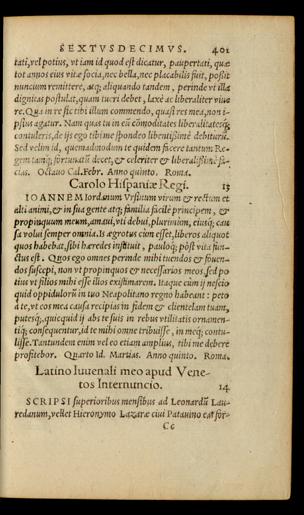 SEXTVSDECIMVS. 401
tati, vel potius, vt iam id quod est dicatur, paupertati, quæ
tot annos eius vitæ socia, nec bella, nec placabilis fuit, possit
nuncium remittere, atq; aliquando tandem, perinde vt illa
dignitas postulat, quam tueri debet, laxè ac liberaliter viue
re. Qua in re sic tibi illum commendo, quasi res mea, non i-
psius agatur. Nam quæ tu in eũ cõmoditates liberalitatesq́;
contuleris, de ijs ego tibi me spondeo libentissimè debiturũ.
Sed velim id, quemadmodum te quidem facere tantum Re-
gem tamq; fortunatũ decet, & celeriter & liberalissimè fa-
cias. Octauo Cal. Febr. Anno quinto. Roma.
Carolo Hispaniæ Regi. 13
IOANNEM Iordanum Vrsinum virum & rectum et
alti animi, et in sua gente atq; familia facilè principem, &
propinquum meum, amaui, vti debui, plurimùm, eiusq́; cau
sa volui semper omnia. Is ægrotus cùm esset, liberos aliquot
quos habebat, sibi hæredes instituit, pauloq́; pòst vita fun-
ctus est. Quos ego omnes perinde mihi tuendos & fouen-
dos suscepi, non vt propinquos & necessarios meos, sed po
tius vt filios mihi esse illos existimarem. Itaque cùm ij nescio
quid oppidulorũ in tuo Neapolitano regno habeant: peto
à te, vt eos mea causa recipias in fidem & clientelam tuam,
putesq́;, quicquid ij abs te suis in rebus vtilitatis ornamen-
tiq́; consequentur, id te mihi omne tribuisse, in meq́; contu-
lisse. Tantundem enim vel eo etiam amplius, tibi me debere
profitebor. Quarto Id. Martias. Anno quinto. Roma.
Latino Iuuenali meo apud Vene-
tos Internuncio. 14
SCRIPSI superioribus mensibus ad Leonardũ Lau-
redanum, vellet Hieronymo Lazaræ ciui Patauino eas for-
Cc